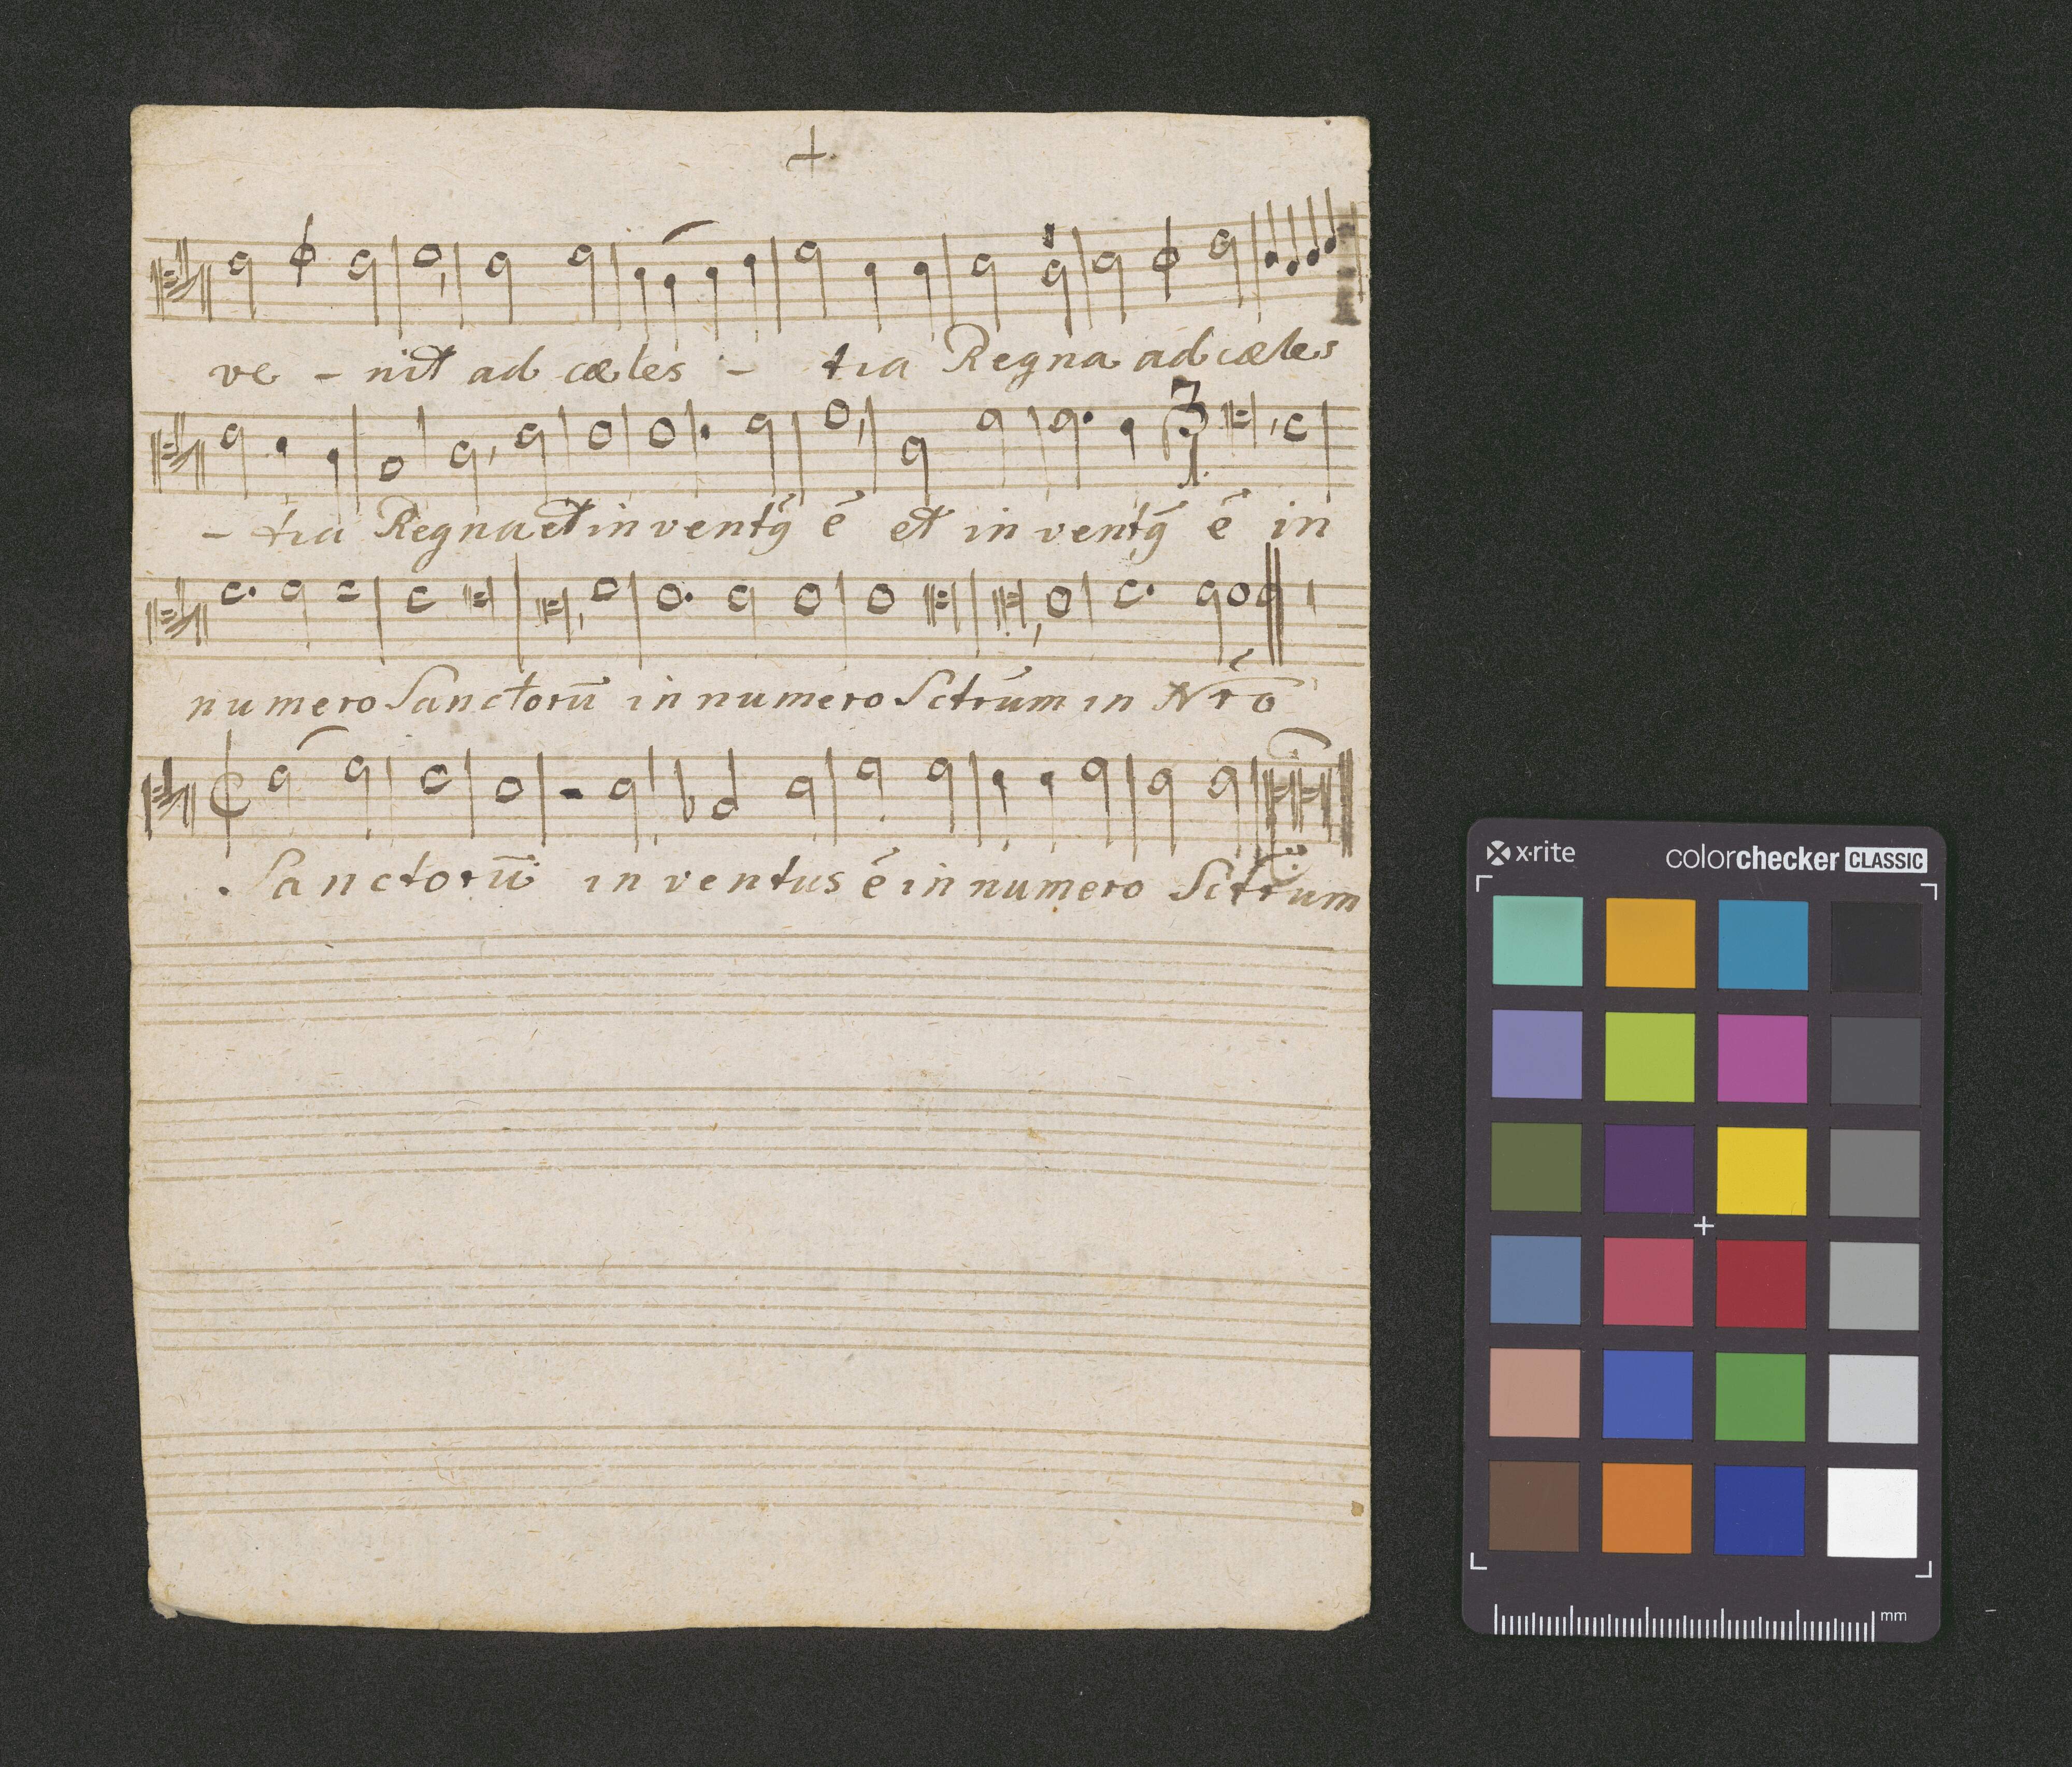 ve - nit ad cæles - tia Regna ad cæles
3
- tia Regna et inventꝯ ē et in ventꝯ ē in
numero Sanctorū in numero Sctrūm in Nr̄o
Sanctorū in ventus ē in numero Sctrum
x·rite colorchecker CLASSIC
mm